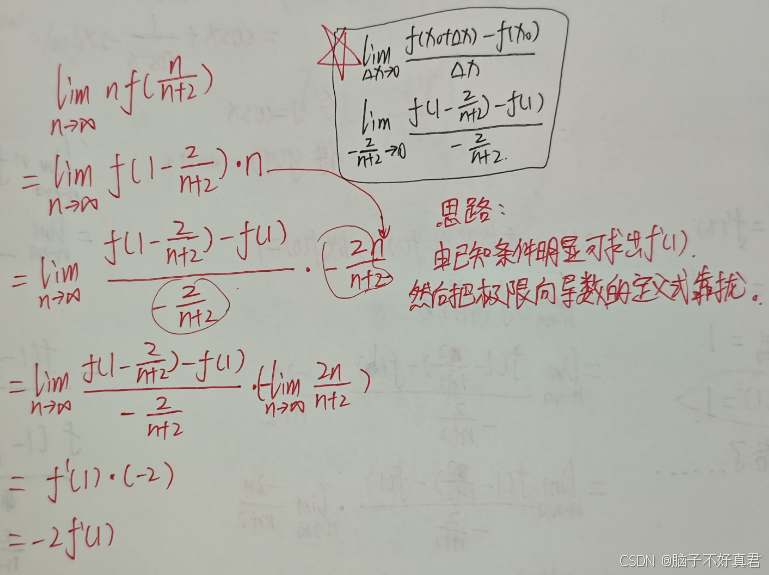 lim_{n→∞} n f(n/(n+2))
= lim_{n→∞} f(1 - 2/(n+2)) · n
= lim_{n→∞} (f(1 - 2/(n+2)) - f(1)) / (-2/(n+2)) · -2n/(n+2)
= lim_{n→∞} (f(1 - 2/(n+2)) - f(1)) / (-2/(n+2)) · (-lim_{n→∞} 2n/(n+2))
= f'(1) · (-2)
= -2f'(1)
lim_{Δx→0} (f(x₀+Δx) - f(x₀)) / Δx
lim_{-2/(n+2)→0} (f(1 - 2/(n+2)) - f(1)) / (-2/(n+2)).
思路:
由已知条件明显可求出f'(1).
然后把极限向导数的定义式靠拢。
CSDN @脑子不好真君